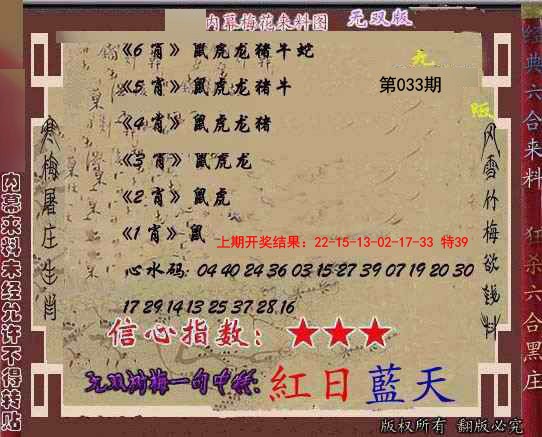 内幕梅花来料图 无双版
《6肖》鼠虎龙猪牛蛇
《5肖》鼠虎龙猪牛
第033期
《4肖》鼠虎龙猪
《3肖》鼠虎龙
《2肖》鼠虎
《1肖》鼠
上期开奖结果：22-15-13-02-17-33 特39
心水码：04 40 24 36 03 15 27 39 07 19 20 30
17 29 14 13 25 37 28 16
信心指数：★★★
无双湘梅一句中特：紅日藍天
版权所有 翻版必究
寒梅屠庄生肖
风雪竹梅欲钱料
无
版
内幕来料未经允许不得转贴
经典六合来料 狂杀六合黑庄